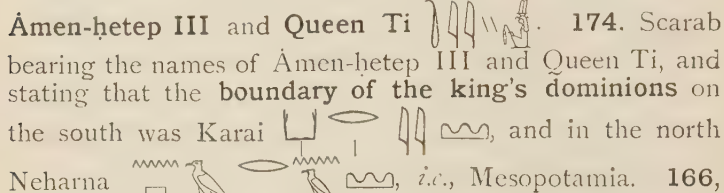 Ȧmen-ḥetep III and Queen Ti 𓍿𓇋𓇋𓏭. 174. Scarab
bearing the names of Ȧmen-ḥetep III and Queen Ti, and
stating that the boundary of the king's dominions on
the south was Karai 𓂓𓂋𓏤𓇋𓇋𓈉, and in the north
Neharna 𓈖𓉔𓄿𓂋𓈖𓄿𓈉, i.e., Mesopotamia. 166,